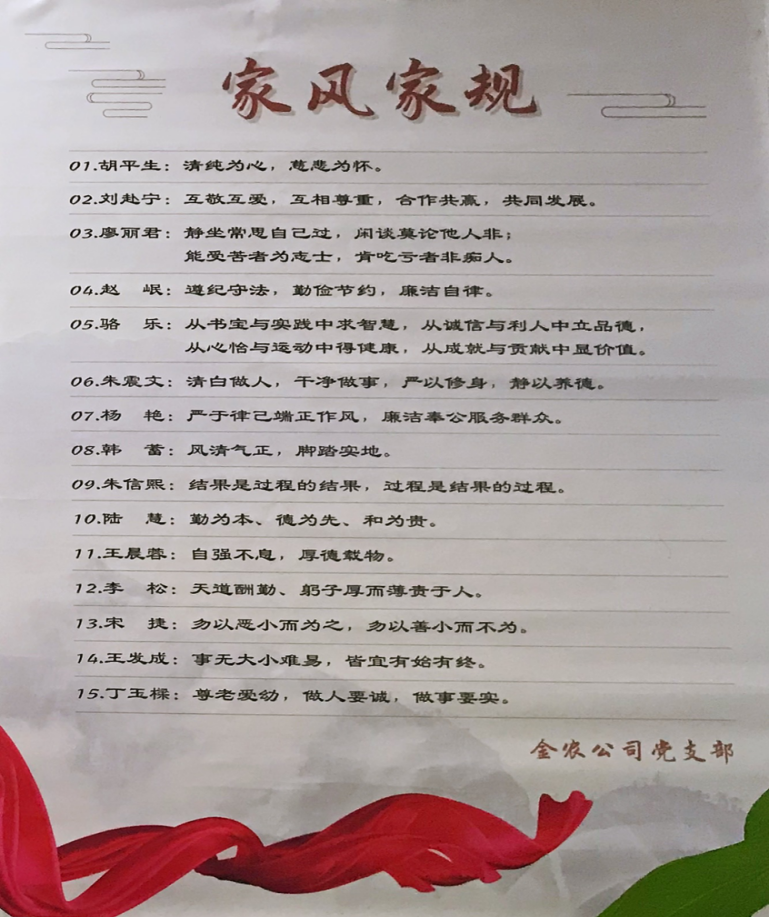 家风家规
01.胡平生：清纯为心，慈悲为怀。
02.刘赴宁：互敬互爱，互相尊重，合作共赢，共同发展。
03.廖丽君：静坐常思自己过，闲谈莫论他人非；
能受苦者为志士，肯吃亏者非痴人。
04.赵 岷：遵纪守法，勤俭节约，廉洁自律。
05.骆 乐：从书宝与实践中求智慧，从诚信与利人中立品德，
从心怡与运动中得健康，从成就与贡献中显价值。
06.朱震文：清白做人，干净做事，严以修身，静以养德。
07.杨 艳：严于律己端正作风，廉洁奉公服务群众。
08.韩 蓄：风清气正，脚踏实地。
09.朱信熙：结果是过程的结果，过程是结果的过程。
10.陆 慧：勤为本、德为先、和为贵。
11.王晨蓉：自强不息，厚德载物。
12.李 松：天道酬勤、躬子厚而薄责于人。
13.宋 捷：勿以恶小而为之，勿以善小而不为。
14.王发成：事无大小难易，皆宜有始有终。
15.丁玉樑：尊老爱幼，做人要诚，做事要实。
金农公司党支部